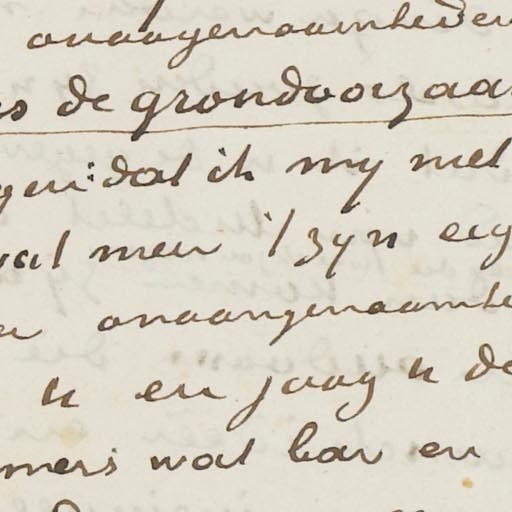 onaagenaamheden
de grondoorzaa
gen: dat ik my met
wat men 't zyn eig
onaangenaamhe
u en jaag u de
mers wat kan en